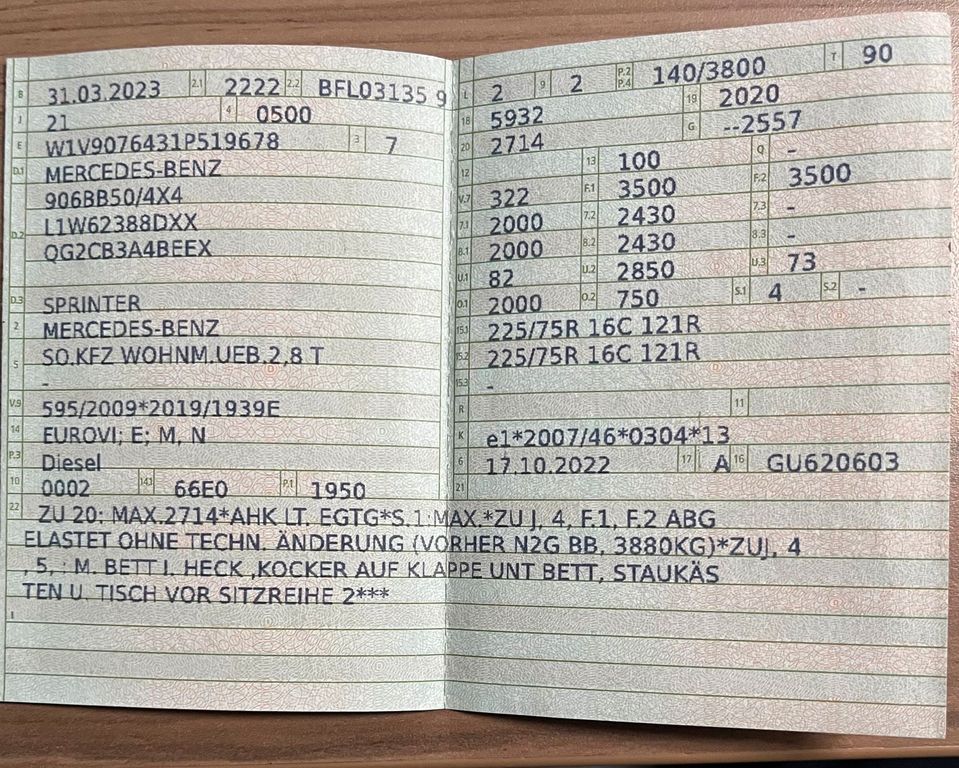 B 31.03.2023 2.1 2222 2.2 BFL03135 9
J 21 4 0500
E W1V9076431P519678 3 7
D.1 MERCEDES-BENZ
906BB50/4X4
D.2 L1W62388DXX
QG2CB3A4BEEX
D.3 SPRINTER
2 MERCEDES-BENZ
5 SO.KFZ WOHNM.UEB.2,8 T
-
V.9 595/2009*2019/1939E
14 EUROVI; E; M, N
P.3 Diesel
10 0002 14.1 66E0 P.1 1950
L 2 9 2 P.2 P.4 140/3800 T 90
18 5932 19 2020
20 2714 G --2557
12 13 100 Q -
V.7 322 F.1 3500 F.2 3500
7.1 2000 7.2 2430 7.3 -
8.1 2000 8.2 2430 8.3 -
U.1 82 U.2 2850 U.3 73
O.1 2000 O.2 750 S.1 4 S.2 -
15.1 225/75R 16C 121R
15.2 225/75R 16C 121R
15.3 -
R 11
K e1*2007/46*0304*13
6 17.10.2022 17 A 16 GU620603
21
22 ZU 20: MAX.2714*AHK LT. EGTG*S.1:MAX.*ZU J, 4, F.1, F.2 ABG
ELASTET OHNE TECHN. ÄNDERUNG (VORHER N2G BB, 3880KG)*ZUJ, 4
, 5, : M. BETT I. HECK ,KOCKER AUF KLAPPE UNT BETT, STAUKÄS
TEN U. TISCH VOR SITZREIHE 2***